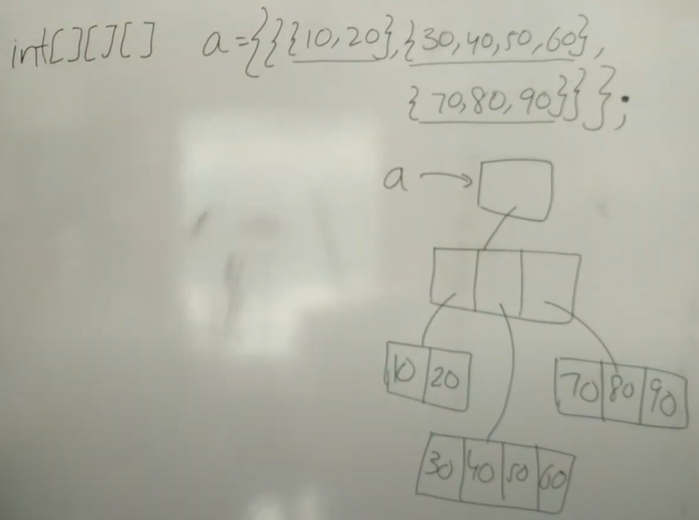 int[][][] a={{{10,20},{30,40,50,60},
{70,80,90}}};
a
10 20
70 80 90
30 40 50 60